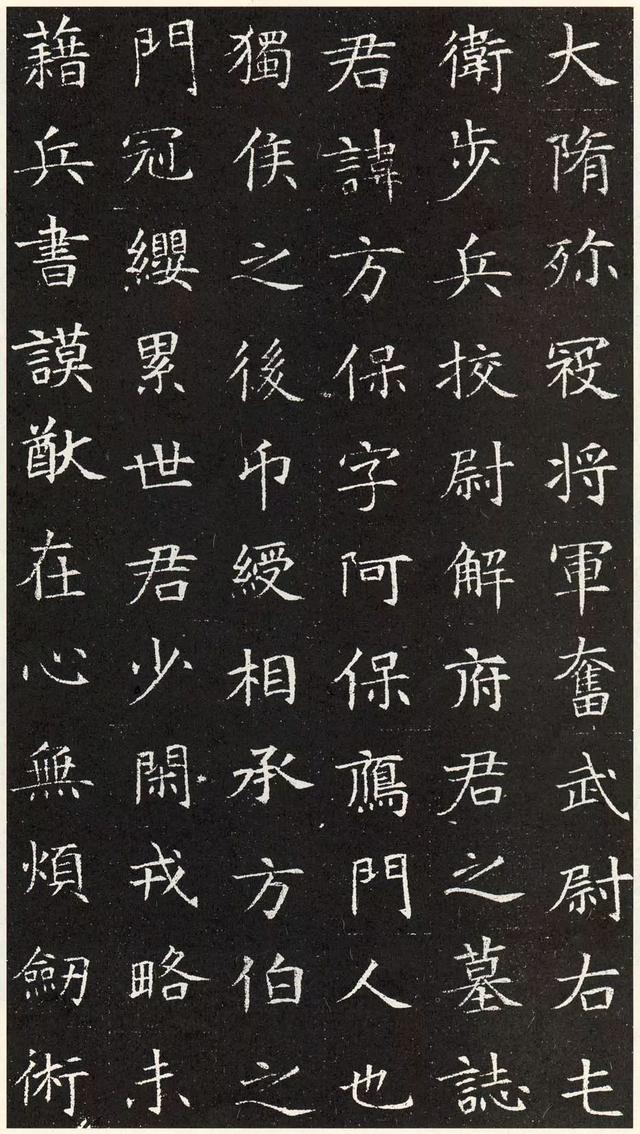 大隋殄寇将軍奮武尉右
衛步兵挍尉解府君之墓誌
君諱方保字阿保鴈門人也
獨侯之後帀綬相承方伯之
門冠纓累世君少閑戎略未
藉兵書謨猷在心無煩劒術